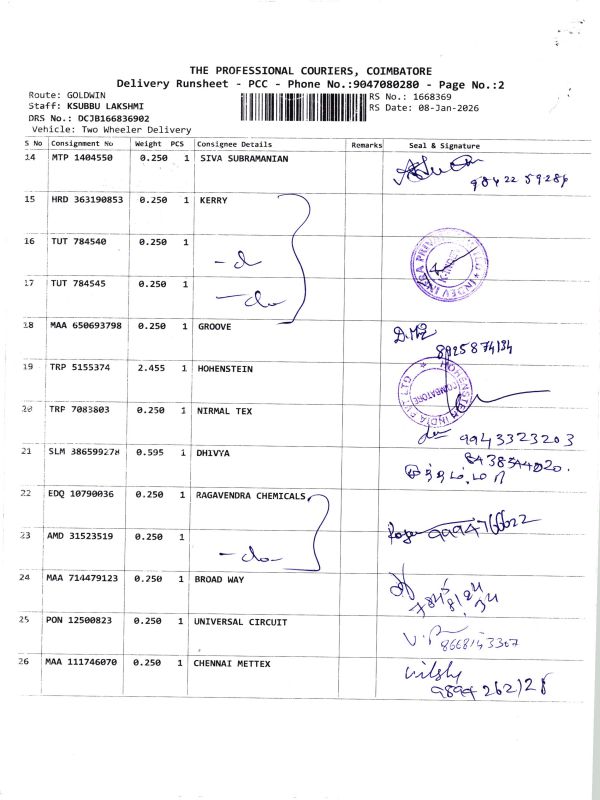 THE PROFESSIONAL COURIERS, COIMBATORE
Delivery Runsheet - PCC - Phone No.:9047080280 - Page No.:2
Route: GOLDWIN
Staff: KSUBBU LAKSHMI
DRS No.: DCJB166836902
Vehicle: Two Wheeler Delivery
RS No.: 1668369
RS Date: 08-Jan-2026
S No Consignment No Weight PCS Consignee Details Remarks Seal & Signature
14 MTP 1404550 0.250 1 SIVA SUBRAMANIAN
98422 59286
15 HRD 363190853 0.250 1 KERRY
16 TUT 784540 0.250 1
-do
17 TUT 784545 0.250 1
-do-
18 MAA 650693798 0.250 1 GROOVE
8925874134
19 TRP 5155374 2.455 1 HOHENSTEIN
HOHENSTEIN INDIA PVT. LTD
COIMBATORE
20 TRP 7083803 0.250 1 NIRMAL TEX
9943323203
21 SLM 386599278 0.595 1 DHIVYA
22 EDQ 10790036 0.250 1 RAGAVENDRA CHEMICALS
23 AMD 31523519 0.250 1
-do-
24 MAA 714479123 0.250 1 BROAD WAY
25 PON 12500823 0.250 1 UNIVERSAL CIRCUIT
26 MAA 111746070 0.250 1 CHENNAI METTEX
9894262128